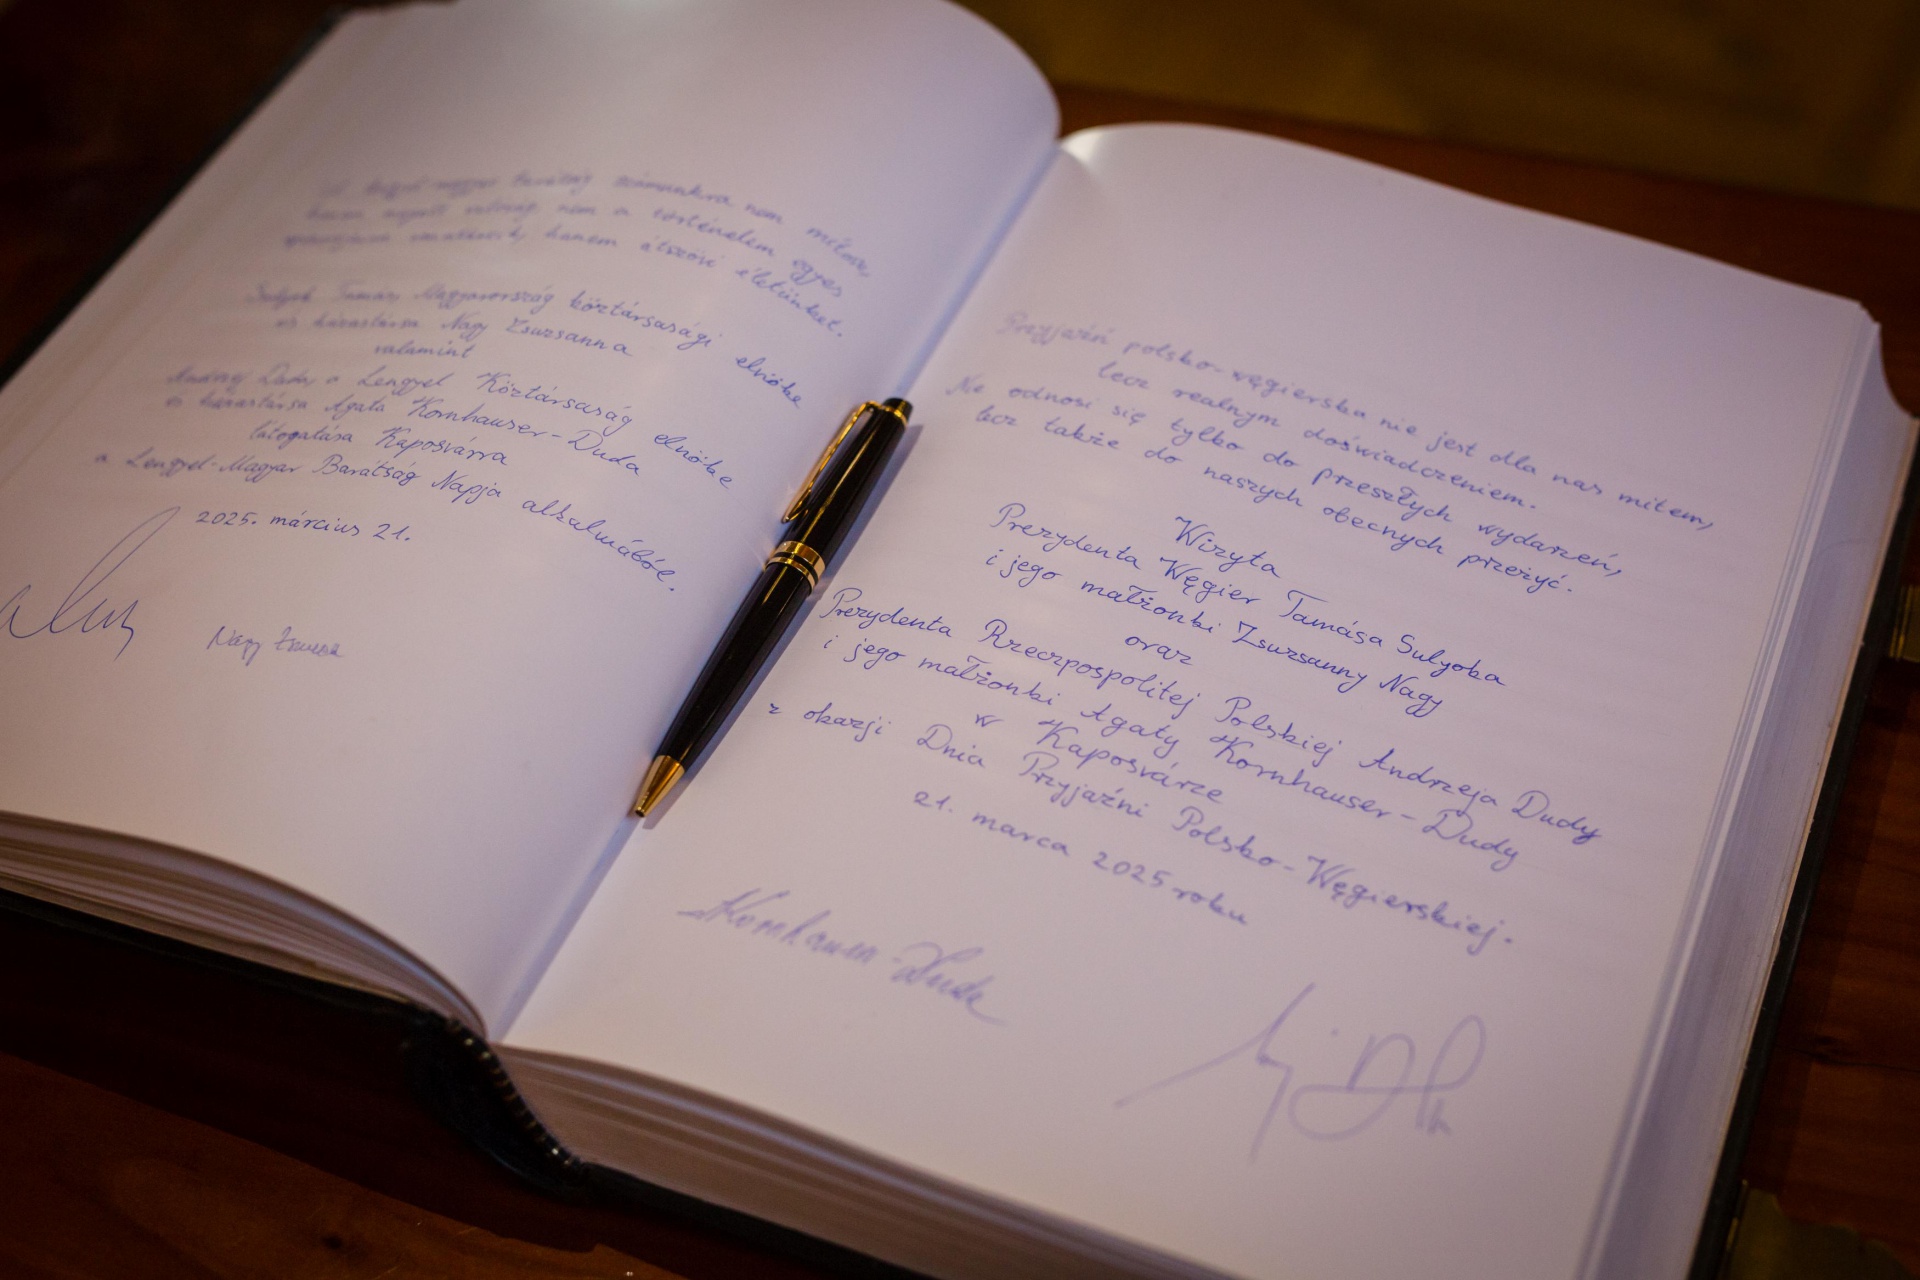 A lengyel-magyar barátság számunkra nem mítosz,
hanem megélt valóság, nem a történelem egyes
eseményeire vonatkozik, hanem átszövi életünket.
Sulyok Tamás Magyarország köztársasági elnöke
és házastársa Nagy Zsuzsanna
valamint
Andrzej Duda, a Lengyel Köztársaság elnöke
és házastársa Agata Kornhauser-Duda
látogatása Kaposvárra
a Lengyel-Magyar Barátság Napja alkalmából.
2025. március 21.
Nagy Zsuzsa
Przyjaźń polsko-węgierska nie jest dla nas mitem,
lecz realnym doświadczeniem.
Nie odnosi się tylko do przeszłych wydarzeń,
lecz także do naszych obecnych przeżyć.
Wizyta
Prezydenta Węgier Tamása Sulyoka
i jego małżonki Zsuzsanny Nagy
oraz
Prezydenta Rzeczpospolitej Polskiej Andrzeja Dudy
i jego małżonki Agaty Kornhauser-Dudy
w Kaposvárze
z okazji Dnia Przyjaźni Polsko-Węgierskiej.
21. marca 2025 roku
AKornhauser-Duda